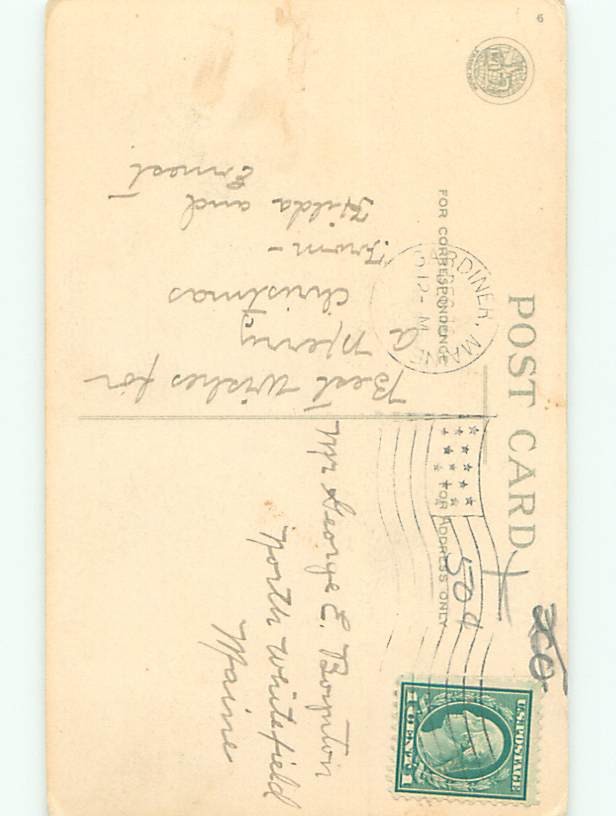 6
POST CARD
FOR CORRESPONDENCE
FOR ADDRESS ONLY
GARDINER, MAINE
DEC
12-M
Best Wishes for
a Merry
Christmas
From-
Hilda and
Ernest
50¢
U.S. POSTAGE
1 CENT 1
Mr George E. Boynton
North Whitefield
Maine